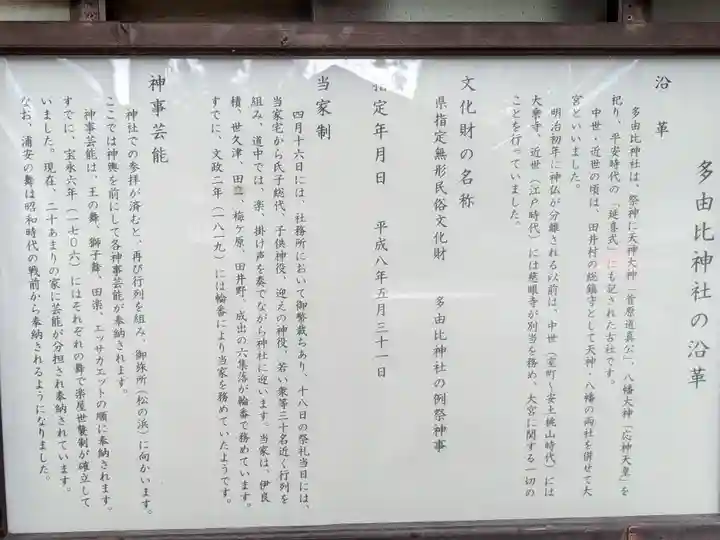 多由比神社の沿革
沿革
多由比神社は、祭神に天神大神「菅原道真公」、八幡大神「応神天皇」を
祀り、平安時代の「延喜式」にも記された古社です。
中世・近世の頃は、田井村の総鎮守として天神・八幡の両社を併せて大
宮といいました。
明治初年に神仏が分離される以前は、中世（室町～安土桃山時代）には
大乗寺、近世（江戸時代）には慈眼寺が別当を務め、大宮に関する一切の
ことを行っていました。
文化財の名称
県指定無形民俗文化財　多由比神社の例祭神事
指定年月日　平成八年五月三十一日
当家制
四月十六日には、社務所において御幣裁ちあり、十八日の祭礼当日には、
当家宅から氏子総代、子供神役、迎えの神役、若い衆等三十名近く行列を
組み、道中では、楽、掛け声を奏でながら神社に迎います。当家は、伊良
積、世久津、田立、梅ケ原、田井野、成出の六集落が輪番で務めています。
すでに、文政二年（一八一九）には輪番により当家を務めていたようです。
神事芸能
神社での参拝が済むと、再び行列を組み、御旅所（松の浜）に向かいます。
ここでは神輿を前にして各神事芸能が奉納されます。
神事芸能は、王の舞、獅子舞、田楽、エッサカエットの順に奉納されます。
すでに、宝永六年（一七〇六）にはそれぞれの舞で楽屋世襲制が確立して
いました。現在、二十あまりの家に芸能が分担され奉納されています。
なお、浦安の舞は昭和時代の戦前から奉納されるようになりました。